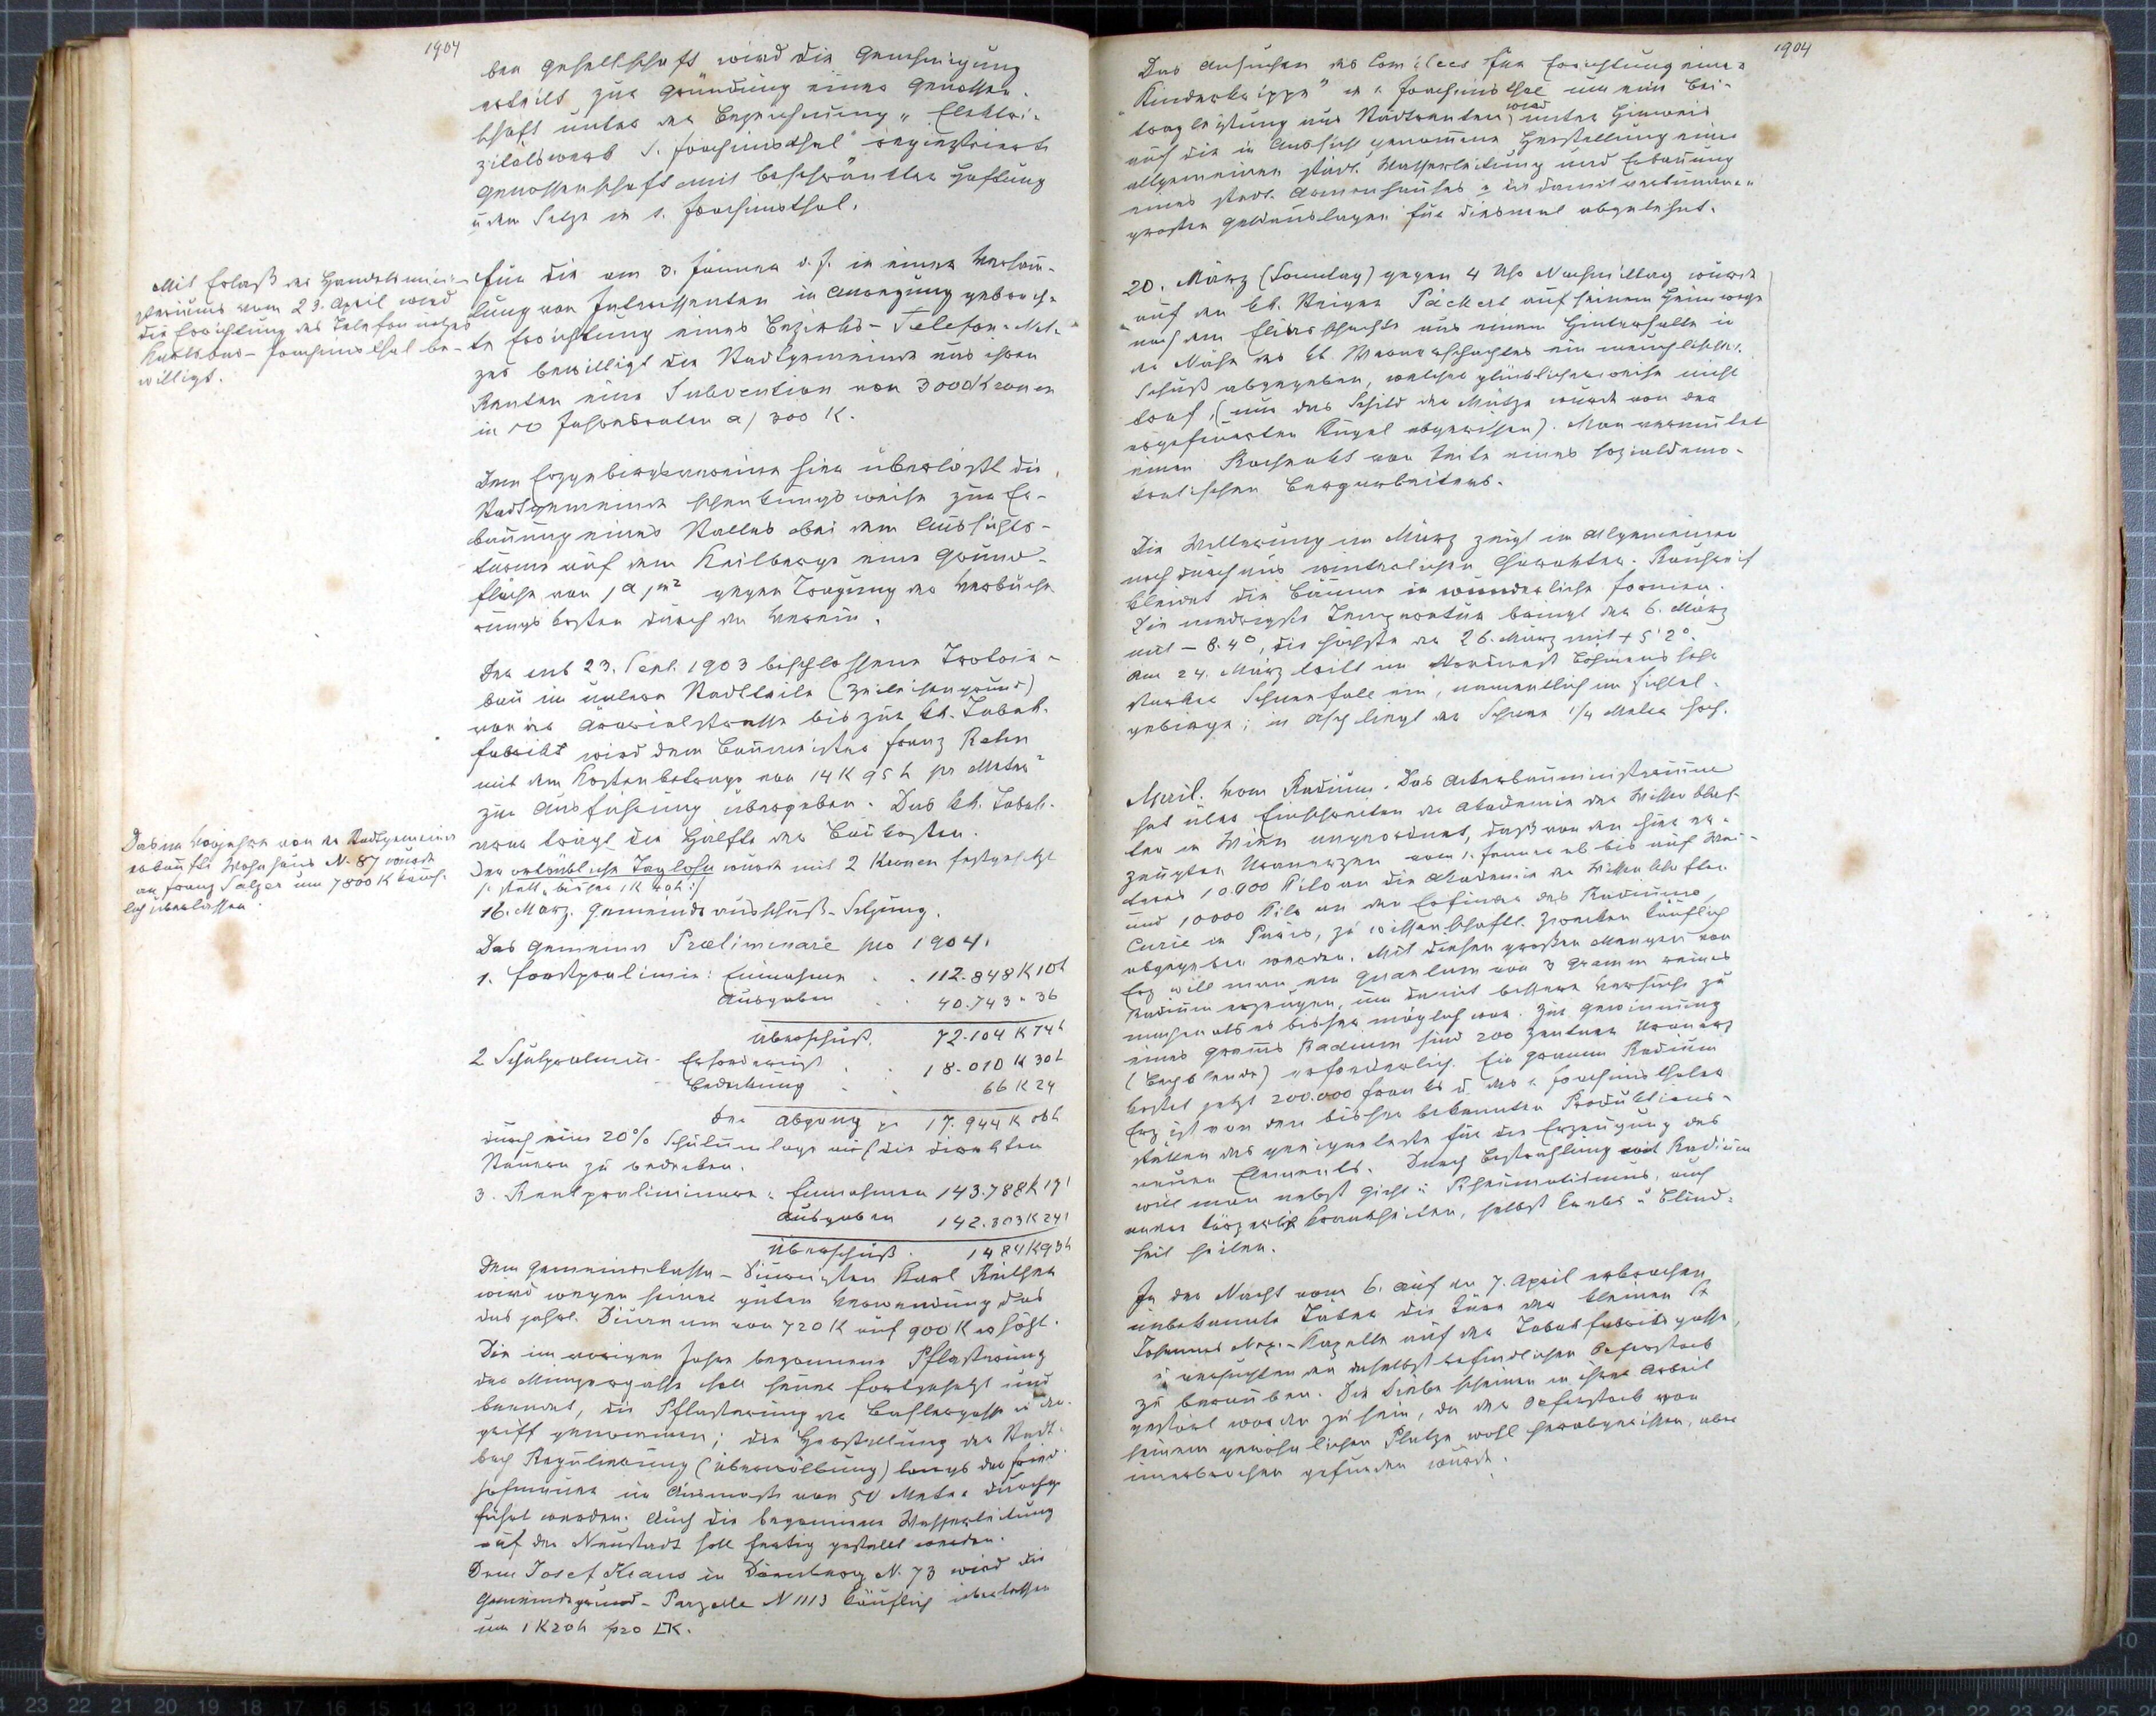 1904
ben Gesellschaft wird die Genehmigung
erteilt zur Gründung einer Genossen-
schaft unter der Bezeichnung "Elektri-
zitätswerk S. Joachimsthal" registrierte
Genossenschaft mit beschränkter Haftung
u. dem Sitze in S. Joachimsthal.
Mit Erlaß des Handelsmini-
steriums vom 23. April wird
die Errichtung des Telefonnetzes
Karlsbad-Joachimsthal be-
willigt.
Für die am 3. Jänner d. J. in einer Versam-
lung von Interessenten in Anregung gebrach-
te Errichtung eines Bezirks-Telefon-Net-
zes bewilligt die Stadtgemeinde aus ihren
Renten eine Subvention von 3000 Kronen
in 10 Jahresraten a) 300 K.
Dem Erzgebirgsvereine hier überläßt die
Stadtgemeinde schenkungsweise zur Er-
bauung eines Stalles bei dem Aussichts-
turme auf dem Keilberge eine Grund-
fläche von 1 a 1 m² gegen Tragung der Verbüche
rungskosten durch den Verein.
Der mit 23. Sept. 1903 beschlossene Trotoir-
bau im untern Stadtteile (Zeileisengrund)
von der Ärarialstrasse bis zur kk. Tabak-
fabrik wird dem Baumeister Franz Rehn
mit dem Kostenbetrage von 14 K 95 h pr Meter²
zur Ausführung übergeben. Das kk. Tabak-
ärar trägt die Hälfte der Baukosten.
Das im Vorjahre von der Stadtgemeinde
erkaufte Wohnhaus N. 87 wurde
an Franz Salzer um 7800 K käuf-
lich überlassen.
Der ortsübliche Taglohn wurde mit 2 Kronen festgesetzt
/: statt bisher 1 K 40 h :/
16. März. Gemeindeausschuß-Sitzung.
Das Gemeinde Præliminare pro 1904.
1. Forstpraelimin: Einnahme . . 112.848 K 10 h
Ausgaben . . 40.743 " 36
Überschuß. 72.104 K 74 h
2 Schulpraelimin- Erfordernis . . 18.010 K 30 h
Bedeckung . . 66 K 24
Der Abgang pr 17.944 K 06 h
durch eine 20% Schulumlage auf die direkten
Steuern zu bedecken.
3. Rentpraliminare: Einnahmen 143.788 K 17 h
Ausgaben 142.303 K 24 h
Überschuß. 1484 K 93 h
Dem Gemeindekasse-Diurnisten Karl
wird wegen seiner guten Verwendung das
das jährl. Diurnum von 720 K auf 900 K erhöht.
Die im vorigen Jahre begonnene Pflasterung
der Münzergasse soll heuer fortgesetzt und
beendet, die Pflasterung der gasse in An-
griff genommen; die Herstellung der Stadt-
bach Regulierung (Überwölbung) längs der Fried-
hofmauer im Ausmaße von 50 Meter durchge
führt werden. Auch die begonnene Wasserleitung
auf der Neustadt soll fertig gestellt werden.
Dem Josef Kraus in Dürnberg N. 73 wird die
Gemeindegrund-Parzelle N 1113 käuflich überlassen
um 1 K 20 h pro □K.
1904
Das Ansuchen des Comitees für Errichtung einer
"Kinderkrippe" in S. Joachimsthal um eine Bei-
tragleistung aus Stadtrenten, wird unter Hinweis
auf die in Aussicht genommene Herstellung einer
allgemeinen städt. Wasserleitung und Erbauung
eines städt. Armenhauses u. der damit verbundenen
großen Geldauslagen für diesmal abgelehnt.
20. März (Sonntag) gegen 4 Uhr Nachmittag wurde
auf den kk. Steiger Päckert auf seinem Heimwege
nach dem Eliasschachte aus einem Hinterhalte in
der Nähe des kk. Wernerschachtes ein meuchlischer
Schuß abgegeben, welcher glücklicherweise nicht
traf, (nur das Schild der Mütze wurde von der
abgefeuerten Kugel abgerissen). Man vermutet
einen Racheakt von Seite eines sozialdemo-
kratischen Bergarbeiters.
Die Witterung im März zeigt im Allgemeinen
noch durchaus winterlichen Charakter. Rauhreif
kleidet die Bäume in wunderliche Formen.
Die niedrigste Temperatur bringt der 6. März
mit - 8.4°, die höchste der 26. März mit + 5'2°.
Am 24. März tritt im Nordwest Böhmens sehr
starker Schneefall ein, namentlich im Fichtel-
gebirge; in Asch liegt der Schnee 1/4 Meter hoch.
April. Vom Radium. Das Ackerbauministerium
hat über Einschreiten der Akademie der Wissenschaf-
ten in Wien angeordnet, daß von den hier er-
zeugten Uranerzen vom 1. Jänner ab bis auf Wei-
teres 10.000 Kilo an die Akademie der Wissenschaften
und 10000 Kilo an den Erfinder des Radiums,
Curie in Paris, zu wissenschaftl. Zwecken käuflich
abgegeben werden. Mit diesen großen Mengen von
Erz will man ein Quantum von 3 Gramm reines
Radium erzeugen, um damit bessere Versuche zu
machen als es bisher möglich war. Zur Gewinnung
eines Gramms Radium sind 200 Zentner Uranerz
(Bechblende) erforderlich. Ein Gramm Radium
kostet jetzt 200.000 Franks u. das S. Joachimsthaler
Erz ist von den bisher bekannten Produktions-
stätten das geeigneteste für die Erzeugung des
neuen Elements. Durch Bestrahlung mit Radium
will man nebst Gicht u. Rheumatismus, auch
andere körperliche Krankheiten, selbst Krebs u. Blind-
heit heilen.
In der Nacht vom 6. auf den 7. April erbrachen
unbekannte Täter die Türe der kleinen St
Johannes Nep.-Kapelle auf der Tabakfabriksgasse,
u. versuchten den daselbst befindlichen Opferstock
zu berauben. Die Diebe scheinen in ihrer Arbeit
gestört worden zu sein, da der Opferstock von
seinem gewöhnlichen Platze wohl herabgerissen, aber
unerbrochen gefunden wurde.